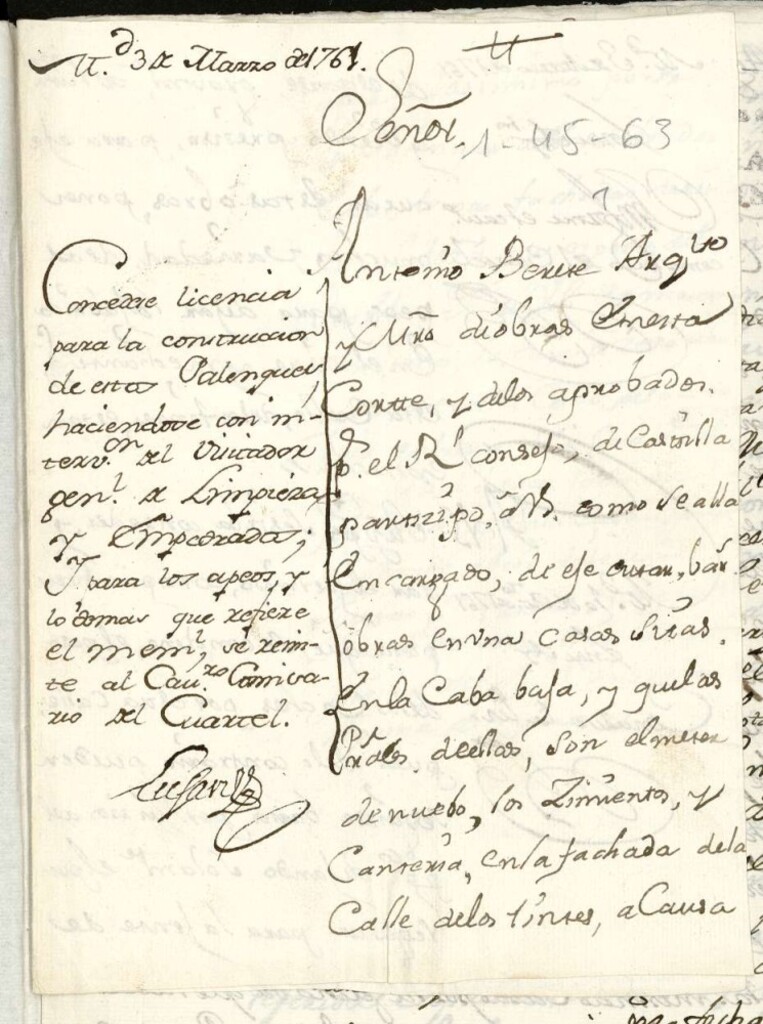 M.d 3 de Marzo de 1761.
Señor.
1-45-63
Concedese licencia
para la construccion
de estos Palenques,
haciendose con in-
terv.on del Visitador
gen.l de Limpieza
y Empedrados;
y para los apeos, y
lo demas que refiere
el mem.l, se remi-
te al Cav.ro Comisa-
rio del Cuartel.
Antonio Berete Arq.to
y Mro de obras en esta
Corte, y de los aprobados
P. el R.l consejo, de Castilla
participo, a V.S. como se alla
Encargado, de ejecutar, bar.s
obras en una Casas sitas
En la Caba baja, y que las
Prales de ellas, son el meter
de nuebo, los Zimientos, y
Canteria, en la fachada de la
Calle de los tintes, a Causa